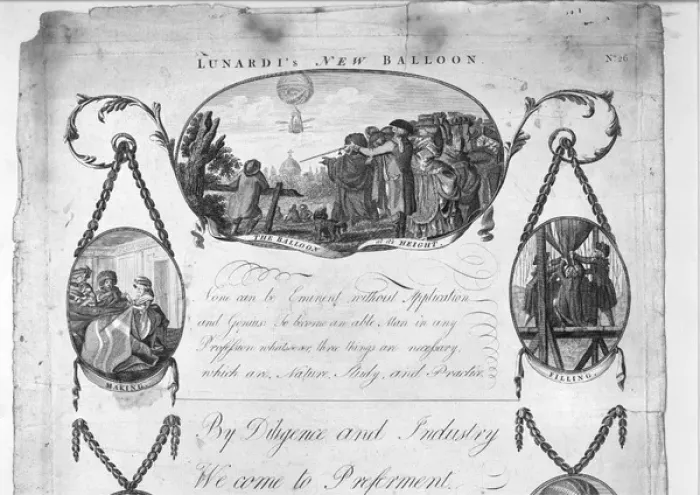 LUNARDI'S NEW BALLOON.
No. 26
THE BALLOON at its HEIGHT.
MAKING.
FILLING.
None can be Eminent without Application
and Genius: To become an able Man in any
Profession whatsoever, three things are necessary,
which are, Nature, Study, and Practice.
By Diligence and Industry
We come to Preferment.